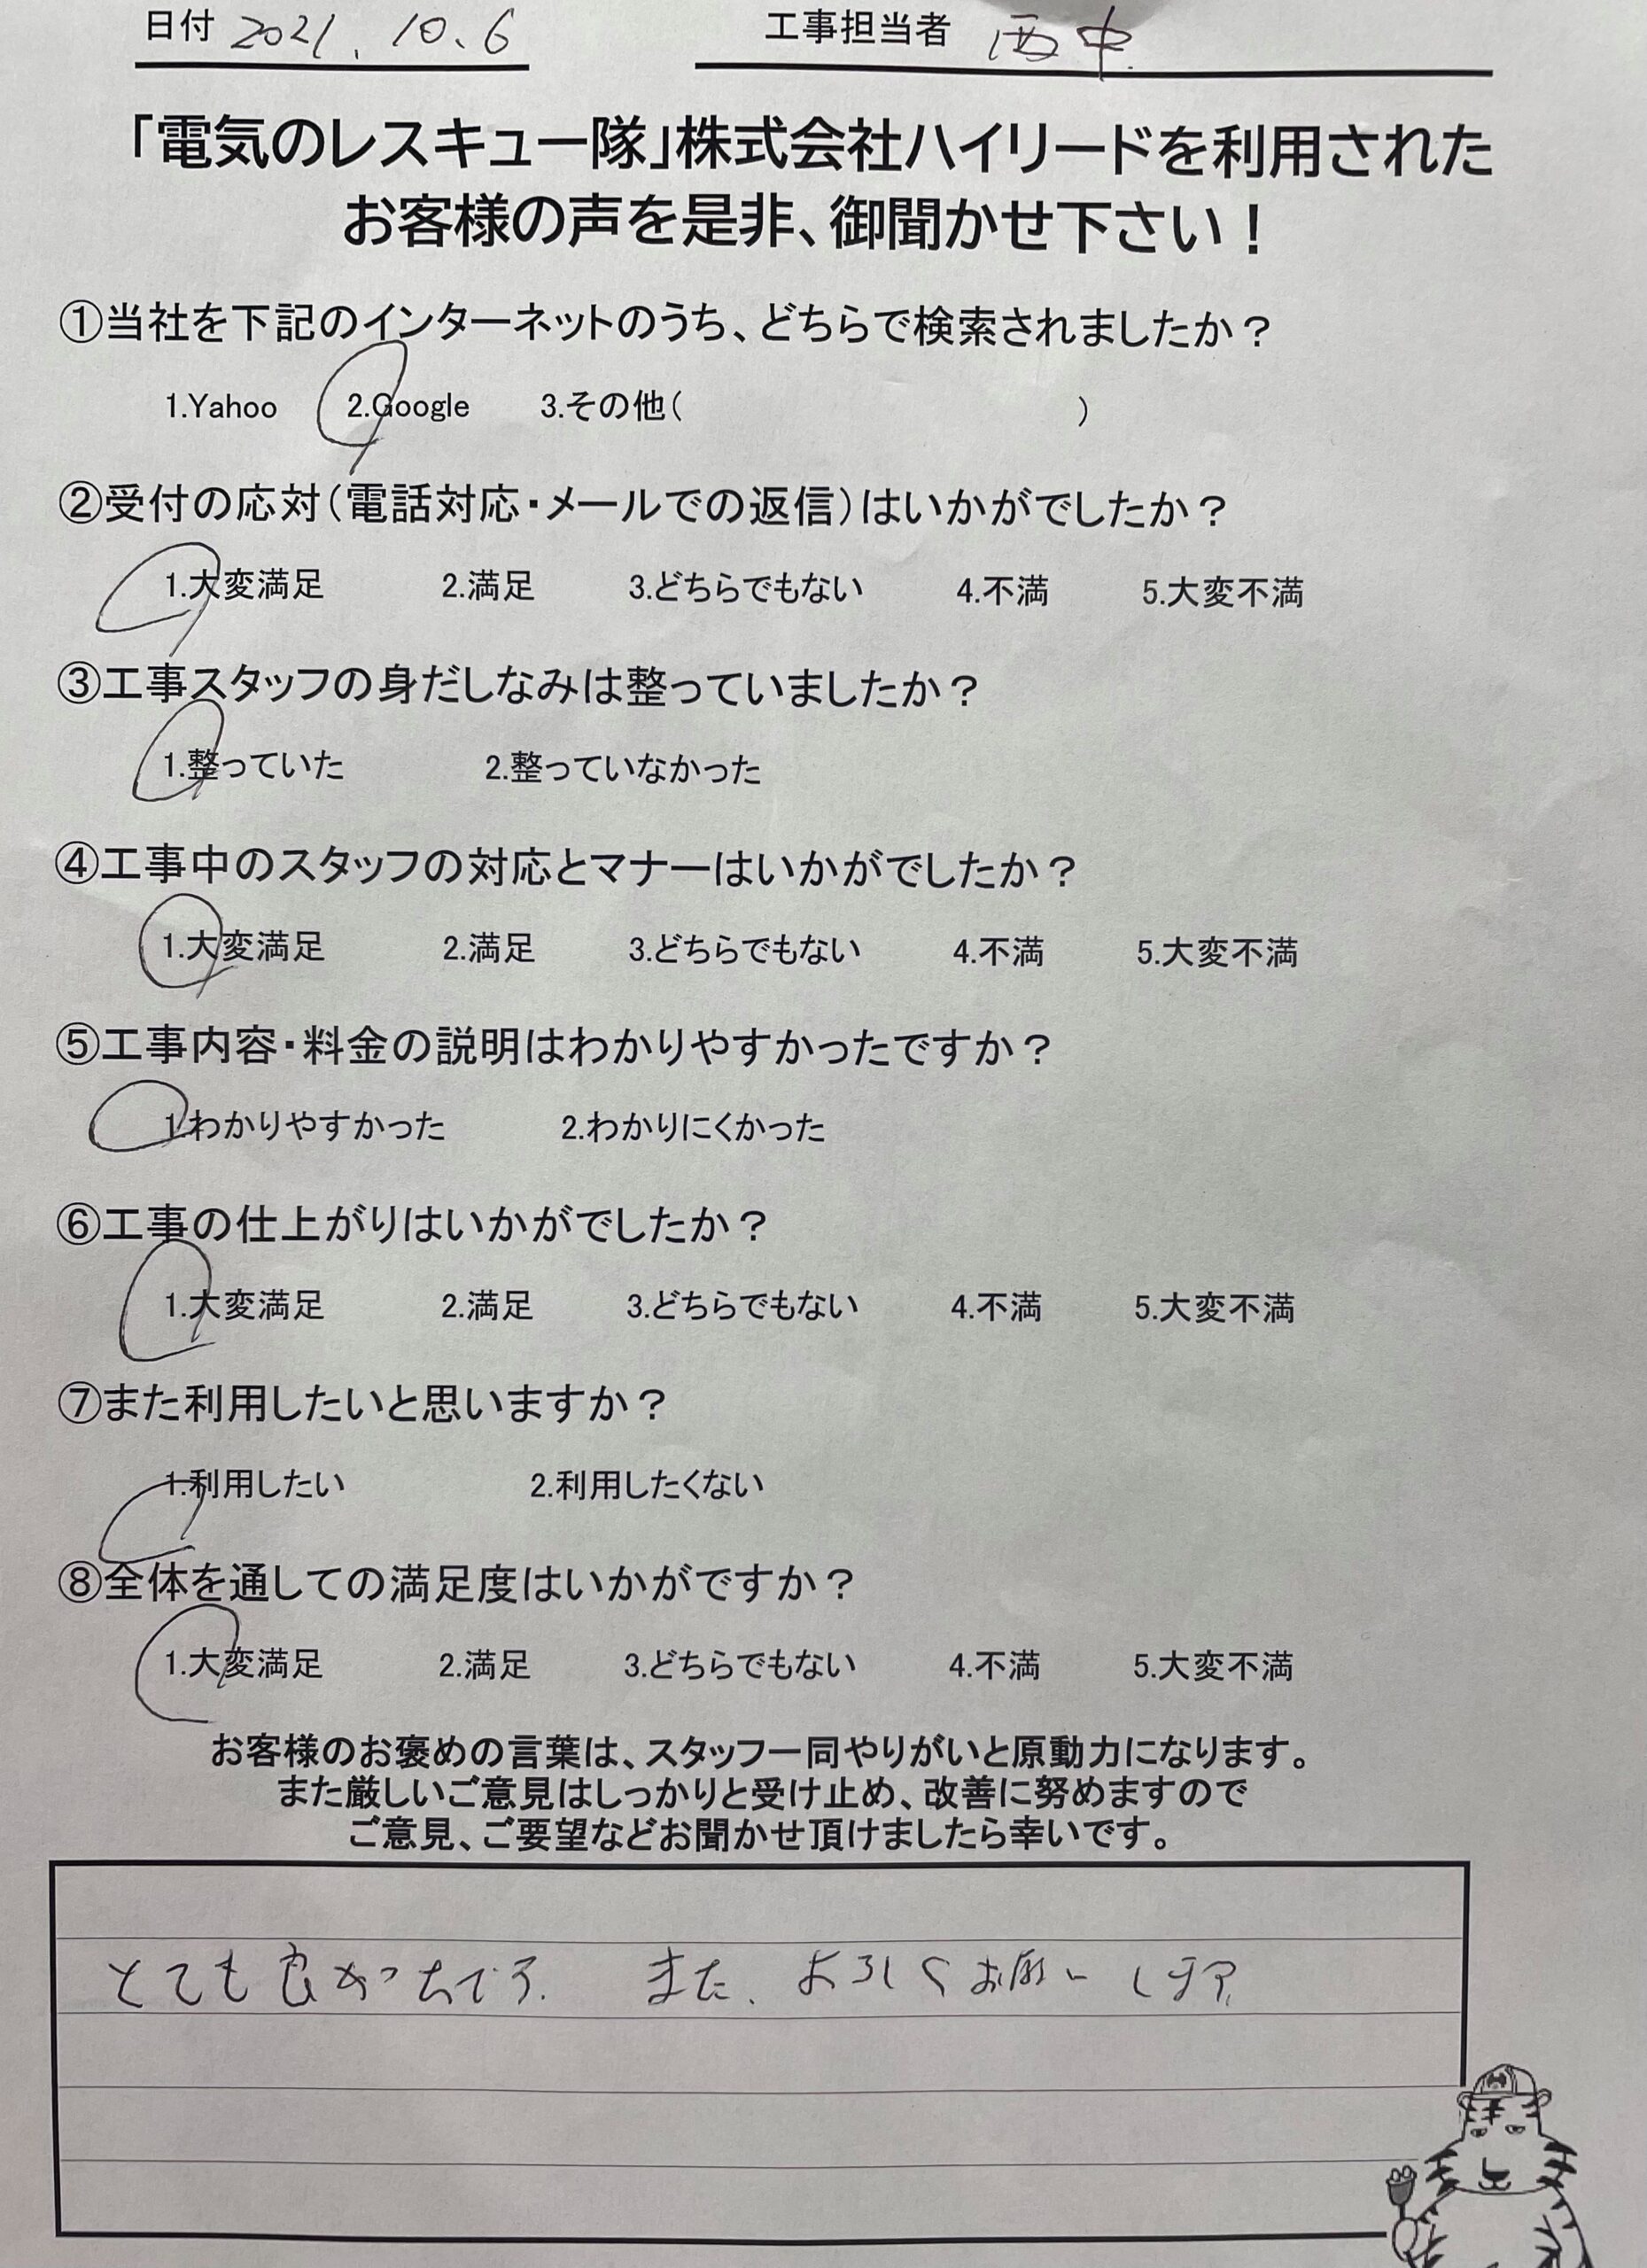 日付 2021.10.6 工事担当者 西中
「電気のレスキュー隊」株式会社ハイリードを利用された
お客様の声を是非、御聞かせ下さい！
①当社を下記のインターネットのうち、どちらで検索されましたか？
1.Yahoo 2.Google 3.その他( )
②受付の応対(電話対応・メールでの返信)はいかがでしたか？
1.大変満足 2.満足 3.どちらでもない 4.不満 5.大変不満
③工事スタッフの身だしなみは整っていましたか？
1.整っていた 2.整っていなかった
④工事中のスタッフの対応とマナーはいかがでしたか？
1.大変満足 2.満足 3.どちらでもない 4.不満 5.大変不満
⑤工事内容・料金の説明はわかりやすかったですか？
1.わかりやすかった 2.わかりにくかった
⑥工事の仕上がりはいかがでしたか？
1.大変満足 2.満足 3.どちらでもない 4.不満 5.大変不満
⑦また利用したいと思いますか？
1.利用したい 2.利用したくない
⑧全体を通しての満足度はいかがですか？
1.大変満足 2.満足 3.どちらでもない 4.不満 5.大変不満
お客様のお褒めの言葉は、スタッフ一同やりがいと原動力になります。
また厳しいご意見はしっかりと受け止め、改善に努めますので
ご意見、ご要望などお聞かせ頂けましたら幸いです。
とても良かったです. また、よろしくお願いします.